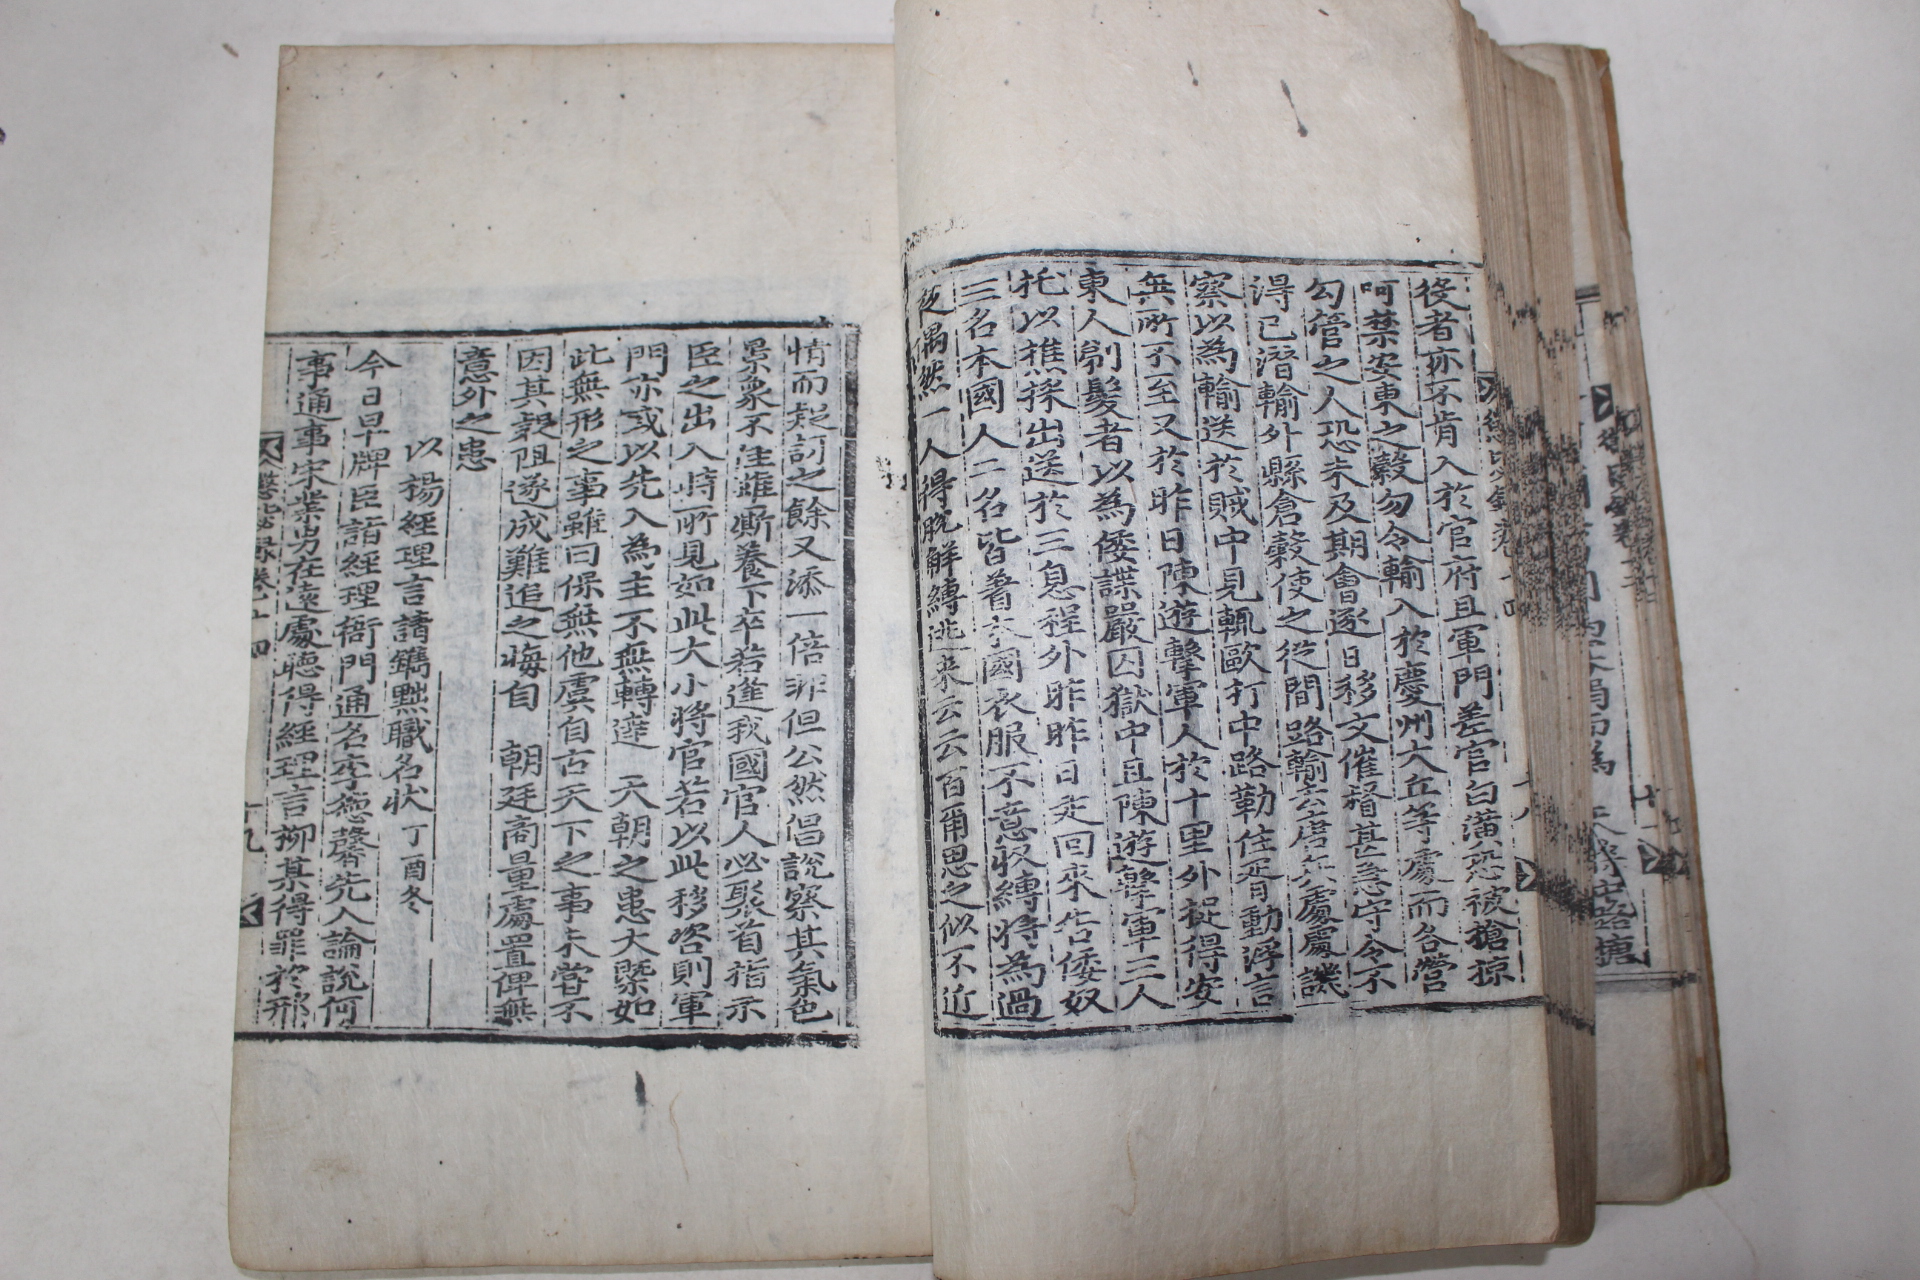 役者亦不肯入於官府且軍門差官白滿恐被搶掠
呵禁安東之穀勿令輸入於慶州大丘等處而各營
勾管之人恐未及期會逐日移文催督甚急守令不
得已潛輸外縣倉穀使之從間路輸去唐兵處處譏
察以為輸送於賊中見輒歐打中路勒住胥動浮言
無所不至又於昨日陳遊擊軍人於十里外捉得安
東人剃髮者以為倭諜嚴囚獄中且陳遊擊軍三人
托以樵採出送於三息程外昨昨日走回來告倭奴
三名本國人二名皆着本國衣服不意収縛將為過
涉偶然一人得脫解縛逃來云云百爾思之似不近
情而起訂之餘又添一倍非但公然倡說察其氣色
景象不佳雖厮養下卒若逢我國官人必聚首指示
臣之出入時所見如此大小將官若以此移咨則軍
門亦或以先入為主不無轉達 天朝之患大槩如
此無形之事雖曰保無他虞自古天下之事未嘗不
因其疑阻遂成難追之悔自 朝廷商量處置俾無
意外之患
以楊經理言請鐫黜職名狀 丁酉冬
今日早牌臣詣經理衙門通名李德馨先入論說何
事通事宋業男在遠處聽得經理言柳某得罪於邢
懲毖錄卷十四
十九